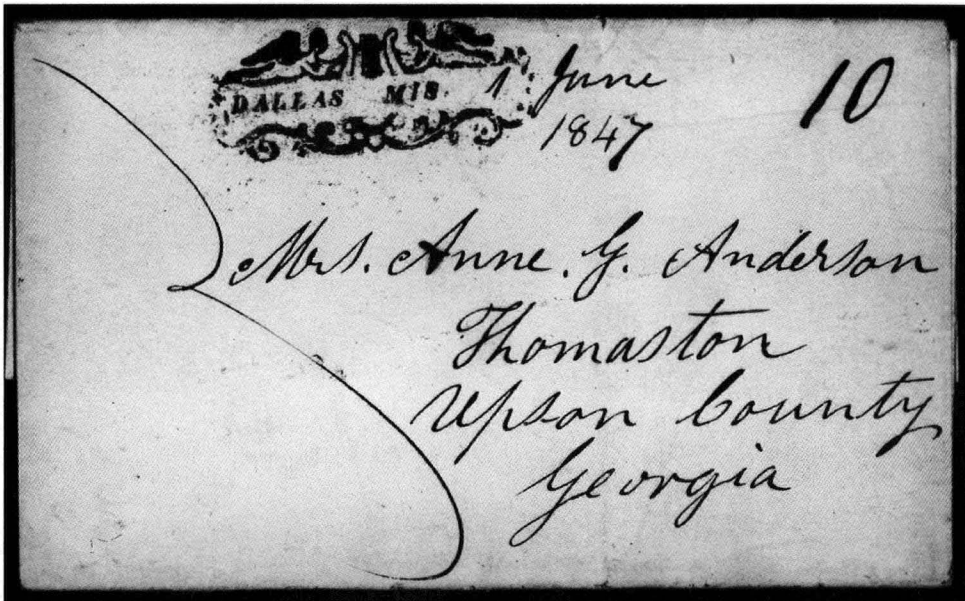 DALLAS MIS. 1 June
1847
10
Mrs. Anne. G. Anderson
Thomaston
Upson County
Georgia